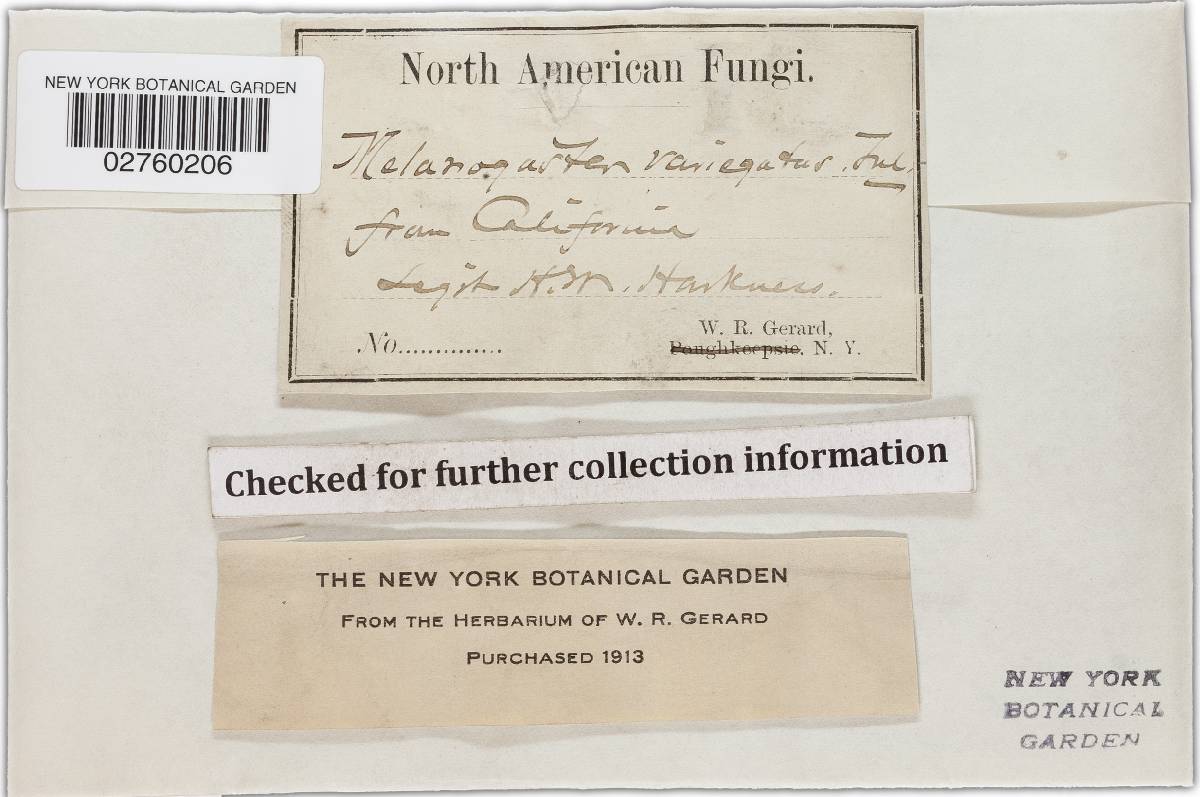 NEW YORK BOTANICAL GARDEN
02760206
North American Fungi.
Melanogaster variegatus. Tul.
from California
Legit H.W. Harkness.
No.............
W. R. Gerard,
Poughkeepsie, N. Y.
Checked for further collection information
THE NEW YORK BOTANICAL GARDEN
FROM THE HERBARIUM OF W. R. GERARD
PURCHASED 1913
NEW YORK
BOTANICAL
GARDEN